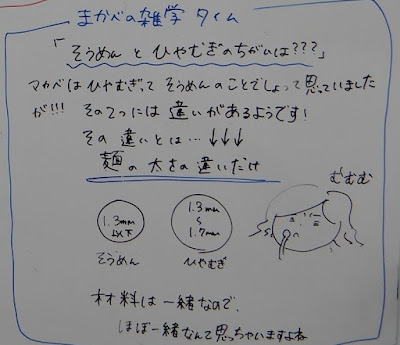 まかべの雑学タイム
「そうめんとひやむぎのちがいは???」
マカベはひやむぎって そうめんのことでしょって思っていました
が!!! その2つには 違いがあるようです!
その 違いとは… ↓↓↓
麺の太さの違いだけ
むむむ
1.3mm
以下
そうめん
1.3mm
〜
1.7mm
ひやむぎ
材料は一緒なので、
ほぼ一緒なんて思っちゃいますよね